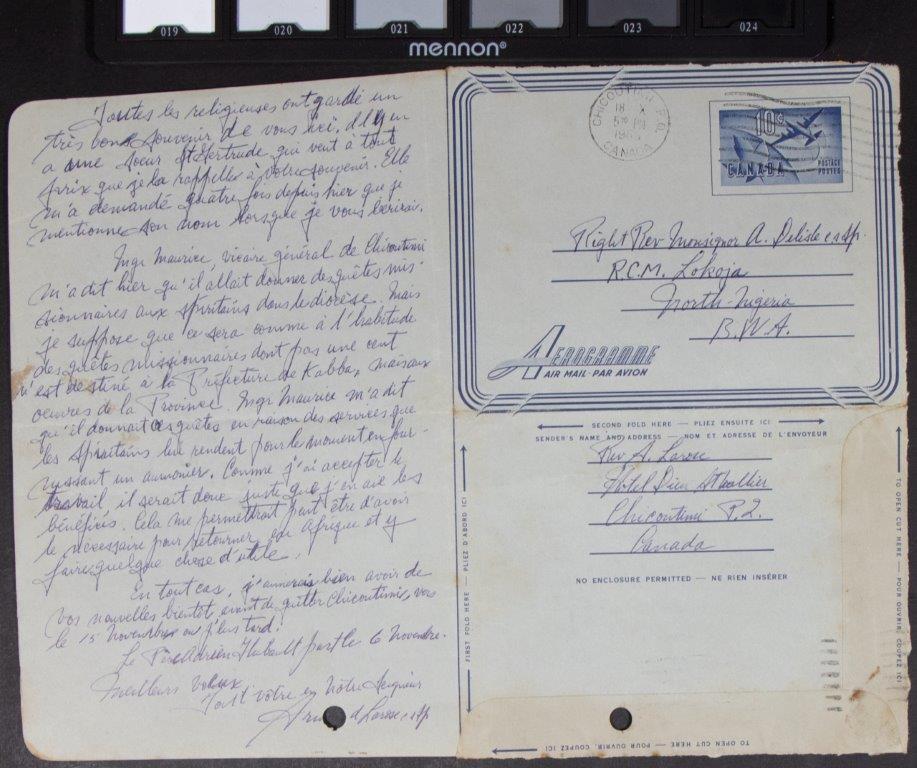 019 020 021 022 023 024
mennon®
Toutes les religieuses ont gardé un
très bon souvenir de vous ici. Il y en
a une Soeur St Gertrude qui veut à tout
prix que je la rappelle à votre souvenir. Elle
m'a demandé quatre fois depuis hier que je
mentionne son nom lorsque je vous écrirai.
Mgr Maurice, vicaire général de Chicoutimi
m'a dit hier qu'il allait donner des quêtes mis-
sionnaires aux spiritains dans le diocèse. Mais
je suppose que ce sera comme à l'habitude
des quêtes missionnaires dont pas une cent
n'est destiné à la Préfecture de Kabba, mais aux
oeuvres de la Province. Mgr Maurice m'a dit
qu'il donnait ces quêtes en raison des services que
les spiritains lui rendent pour le moment en four-
nissant un aumonier. Comme j'ai accepter le
travail il serait donc juste que j'en aie les
bénéfices. Cela me permettrait peut être d'avoir
le nécessaire pour retourner en Afrique et y
faire quelque chose d'utile.
En tout cas, j'aimerais bien avoir de
vos nouvelles bientôt, avant de quitter Chicoutimi, vers
le 15 Novembre au plus tard.
Le Père Adrien Thibault part le 6 Novembre.
Meilleurs voeux
Tout vôtre en Notre Seigneur
Armand Larose c s sp
CHICOUTIMI P.Q.
18 X
5 PM
CANADA
10¢
CANADA
POSTAGE
POSTES
Right Rev Monsignor A. Delisle c s sp.
R.C.M. Lokoja
North-Nigeria
B.W.A.
AEROGRAMME
AIR MAIL · PAR AVION
SECOND FOLD HERE — PLIEZ ENSUITE ICI
SENDER'S NAME AND ADDRESS — NOM ET ADRESSE DE L'ENVOYEUR
Rev A. Larose
Hotel Dieu St Vallier
Chicoutimi P.Q.
Canada
NO ENCLOSURE PERMITTED — NE RIEN INSÉRER
FIRST FOLD HERE — PLIEZ D'ABORD ICI
TO OPEN CUT HERE — POUR OUVRIR COUPEZ ICI
TO OPEN CUT HERE — POUR OUVRIR COUPEZ ICI